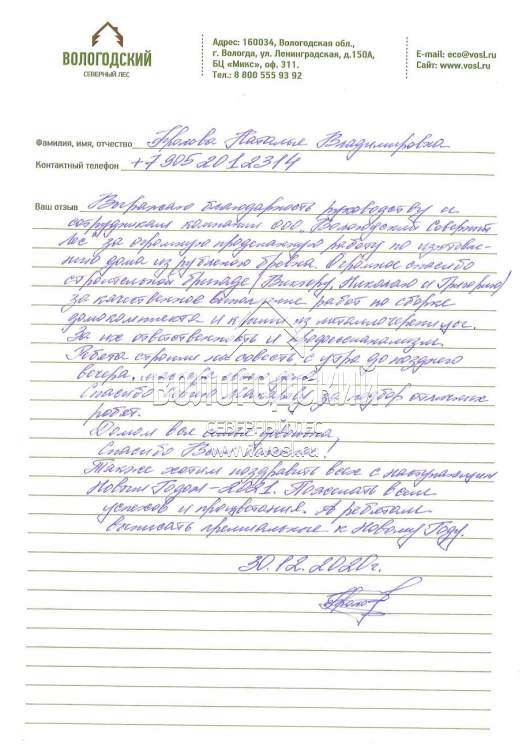 ВОЛОГОДСКИЙ
СЕВЕРНЫЙ ЛЕС
Адрес: 160034, Вологодская обл.,
г. Вологда, ул. Ленинградская, д.150А,
БЦ «Микс», оф. 311.
Тел.: 8 800 555 93 92
E-mail: eco@vosl.ru
Сайт: www.vosl.ru
Фамилия, имя, отчество Фролова Наталья Владимировна
Контактный телефон +7 905 201 23 14
Ваш отзыв Выражаю благодарность руководству и
сотрудникам компании ООО "Вологодский Северный
лес" за огромную проделанную работу по изготовле-
нию дома из рубленого бревна. Огромное спасибо
строительной бригаде (Виктору, Николаю и Григорию)
за качественное работ по сборке
домокомплекта и крыши из металлочерепицы.
За их ответственность и профессионализм.
Ребята строили на совесть с утра до позднего
вечера,
Спасибо за подбор отличных
работ.
Домом вся довольна,
Спасибо Вам большое!
Также хотим поздравить всех с наступающим
Новым Годом - 2021. Пожелать всем
успехов и процветания. А ребятам
выписать премиальные к Новому Году.
30.12.2020г.
ВОЛОГОДСКИЙ
СЕВЕРНЫЙ ЛЕС
www.vosl.ru